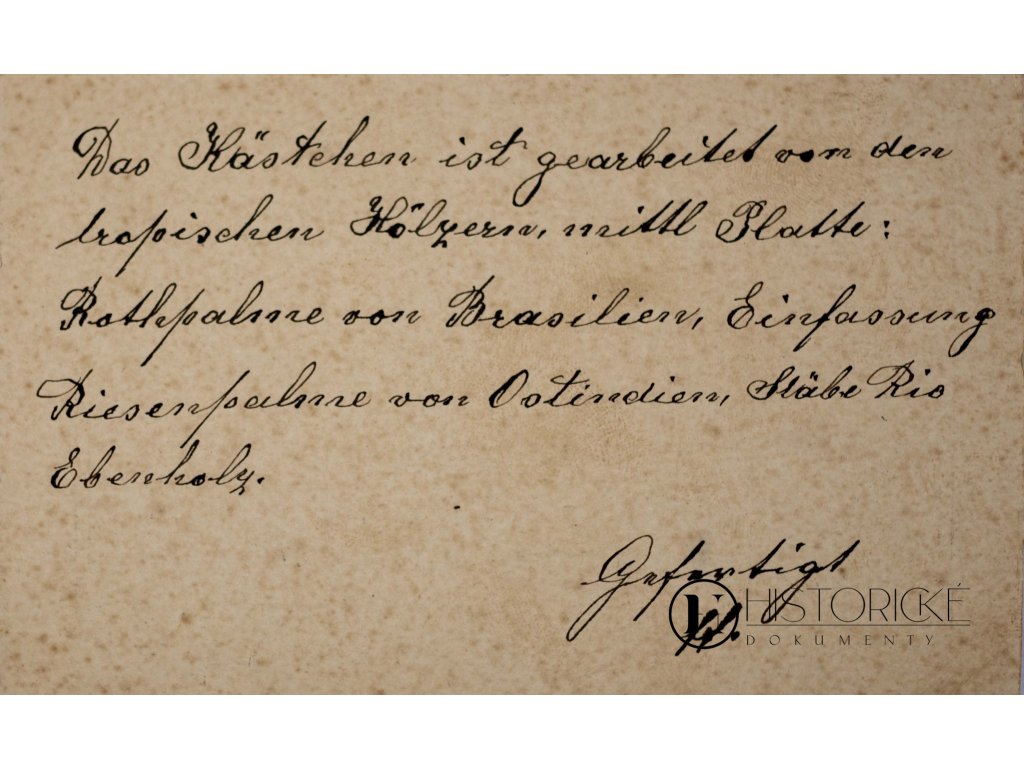 Das Kästchen ist gearbeitet von den
tropischen Hölzern, mittl Platte:
Rothpalme von Brasilien, Einfassung
Riesenpalme von Ostindien, Stäbe Rio
Ebenholz.
Gefertigt
HISTORICKÉ
DOKUMENTY